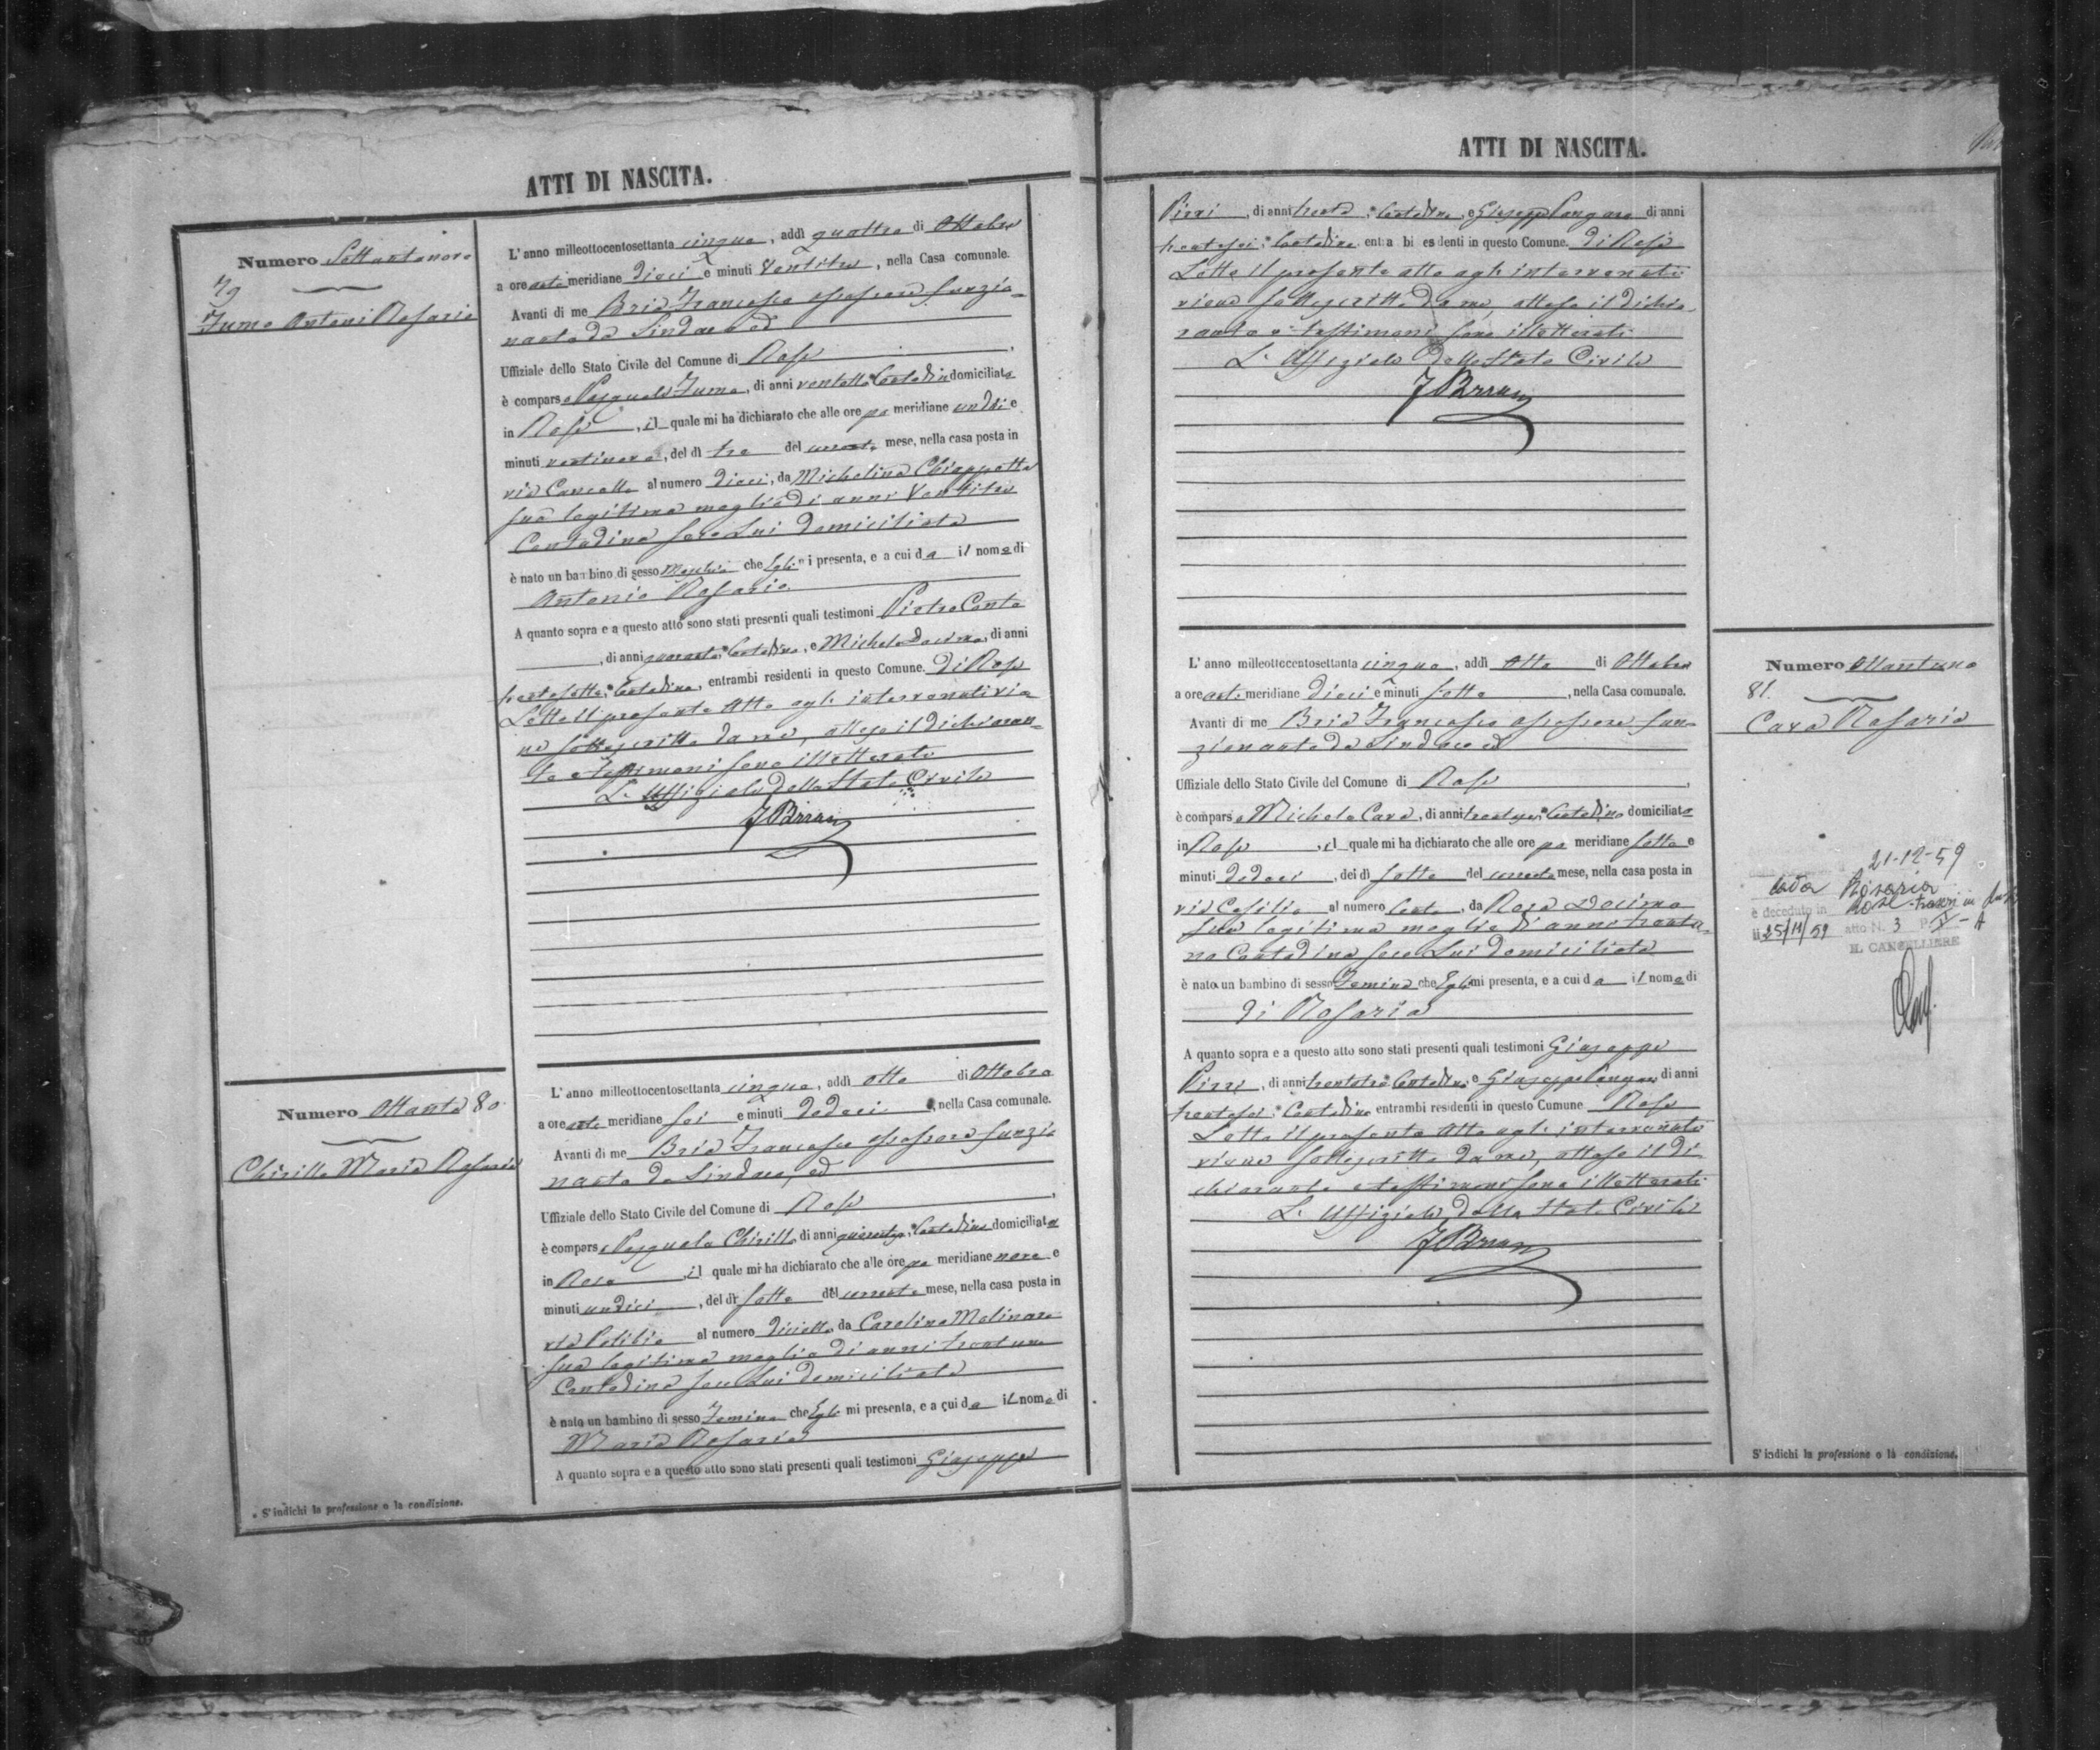 ATTI DI NASCITA.
Numero Settantanove
79
Fumo Antoni Rosario
L' anno milleottocentosettanta cinque, addì quattro di Ottobre
a ore anti meridiane dieci e minuti Ventitre, nella Casa comunale.
Avanti di me Francesco assessore funzio-
nante da Sindaco ed
Uffiziale dello Stato Civile del Comune di Rose,
è comparso Pasquale Fumo, di anni ventotto Contadino domiciliato
in Rose, il quale mi ha dichiarato che alle ore po meridiane undici e
minuti ventinove, del dì tre del corrente mese, nella casa posta in
via Cancello al numero dieci, da Michelina Chiappetta
sua legitima moglie di anni Ventitre
Contadina seco Lui domiciliata
è nato un bambino di sesso Maschio che Egli mi presenta, e a cui da il nome di
Antonio Rosario
A quanto sopra e a questo atto sono stati presenti quali testimoni Pietro Conte
, di anni quaranta Contadino, e Michele Docimo, di anni
trentasette Contadino, entrambi residenti in questo Comune. di Rose
Letto il presente Atto agli intervenuti vie
ne sottoscritto da me, atteso il dichiaran-
te e testimoni sono illetterati
L' Uffiziale dello Stato Civile
Numero Ottanta 80
Chirillo Maria Rosaria
L' anno milleottocentosettanta cinque, addì otto di Ottobre
a ore anti meridiane sei e minuti dodeci, nella Casa comunale.
Avanti di me Francesco assessore funzio
nante da Sindaco, ed
Uffiziale dello Stato Civile del Comune di Rose,
è comparso Pasquale Chirillo, di anni Contadino domiciliato
in Rose, il quale mi ha dichiarato che alle ore po meridiane nove e
minuti undici, del dì sette del corrente mese, nella casa posta in
via al numero diciotto, da Carolina Molinaro
sua legitima moglie di anni trentuno
Contadina seco Lui domiciliata
è nato un bambino di sesso Femina che Egli mi presenta, e a cui da il nome di
Maria Rosaria
A quanto sopra e a questo atto sono stati presenti quali testimoni Giuseppe
* S' indichi la professione o la condizione.
ATTI DI NASCITA.
Pirri, di anni Contadino, e Giuseppe di anni
trentasei, Contadino entrambi residenti in questo Comune. di Rose
Letto il presente atto agli intervenuti
viene sottoscritto da me, atteso il dichia-
rante e testimoni sono illetterati
L' Uffiziale dello Stato Civile
Numero Ottantuno
81.
Cava Rosaria
L' anno milleottocentosettanta cinque, addì Otto di Ottobre
a ore anti meridiane dieci e minuti sette, nella Casa comunale.
Avanti di me Francesco assessore fun-
zionante da Sindaco ed
Uffiziale dello Stato Civile del Comune di Rose,
è comparso Michele Cava, di anni Contadino domiciliato
in Rose, il quale mi ha dichiarato che alle ore po meridiane sette e
minuti dodeci, del dì sette del corrente mese, nella casa posta in
via al numero Cento, da Rosa Docimo
sua legitima moglie di anni trentu-
no Contadina seco Lui domiciliata
è nato un bambino di sesso Femina che Egli mi presenta, e a cui da il nome di
di Rosaria
A quanto sopra e a questo atto sono stati presenti quali testimoni Giuseppe
Pirri, di anni trentatre Contadino e Giuseppe di anni
trentasei, Contadino entrambi residenti in questo Cumune Rose
Letto il presente Atto agli intervenuti
viene sottoscritto da me, atteso il di
chiarante e testimoni sono illetterati
L' Uffiziale dello Stato Civile
21-12-59
Rosaria
è deceduto in Rose
li 25/11/59 atto N. 3 P. II - A
IL CANCELLIERE
S' indichi la professione o la condizione.